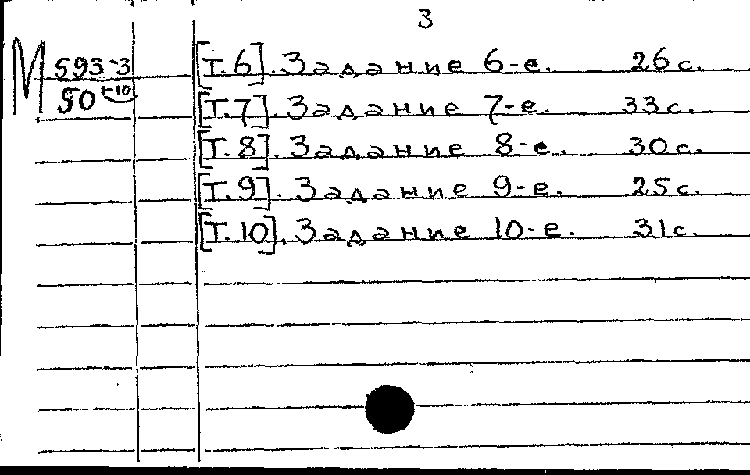 3
М 593-3
50 т-10
[Т.6]. Задание 6-е. 26 с.
[Т.7]. Задание 7-е. 33 с.
[Т.8]. Задание 8-е. 30 с.
[Т.9]. Задание 9-е. 25 с.
[Т.10]. Задание 10-е. 31 с.